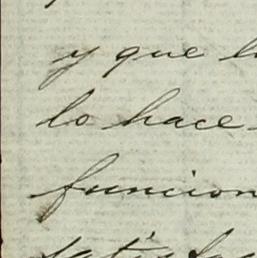 y que l
lo hace
funcion
satisfac